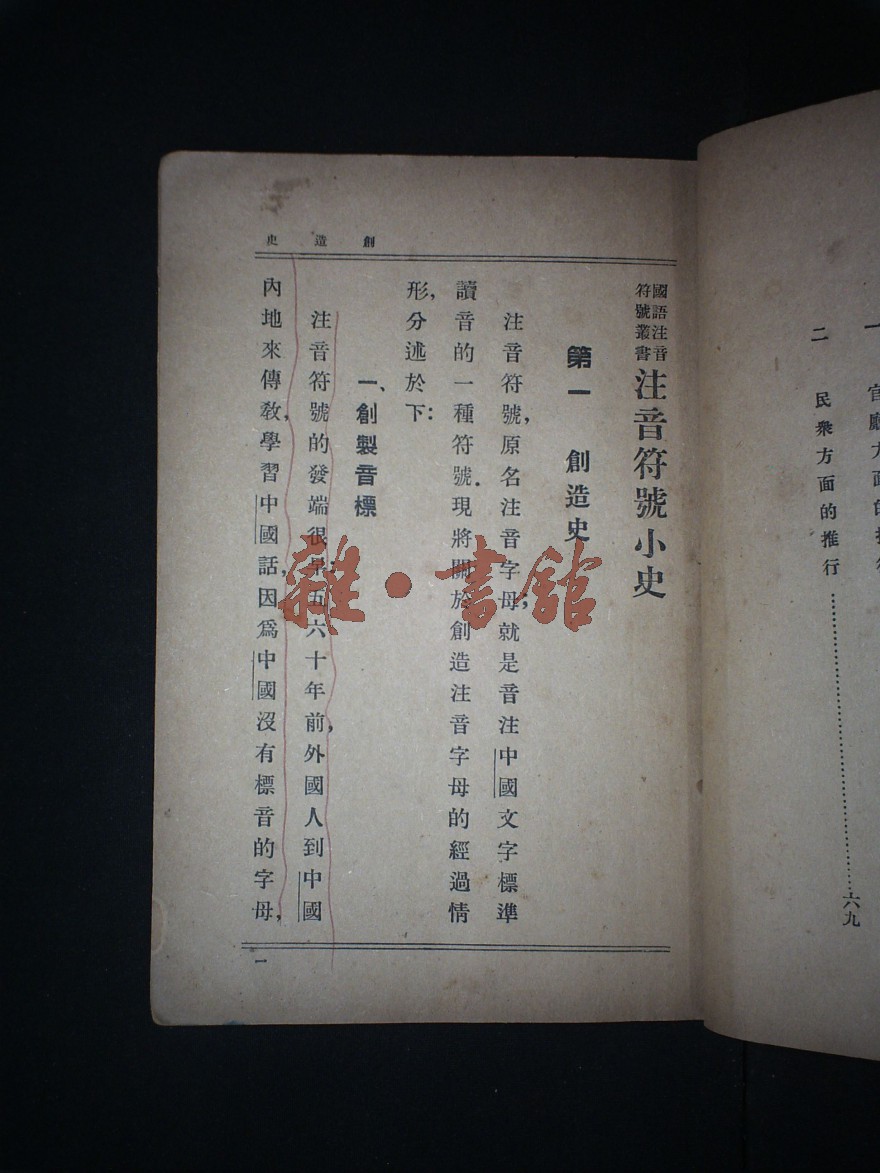 二　民衆方面的推行……………………六九
創造史
國語注音
符號叢書
注音符號小史
第一　創造史
注音符號,原名注音字母;就是音注中國文字標準
讀音的一種符號.現將關於創造注音字母的經過情
形,分述於下:
一、創製音標
注音符號的發端很早;五六十年前,外國人到中國
內地來傳敎,學習中國話,因爲中國沒有標音的字母,
一
雜·書館